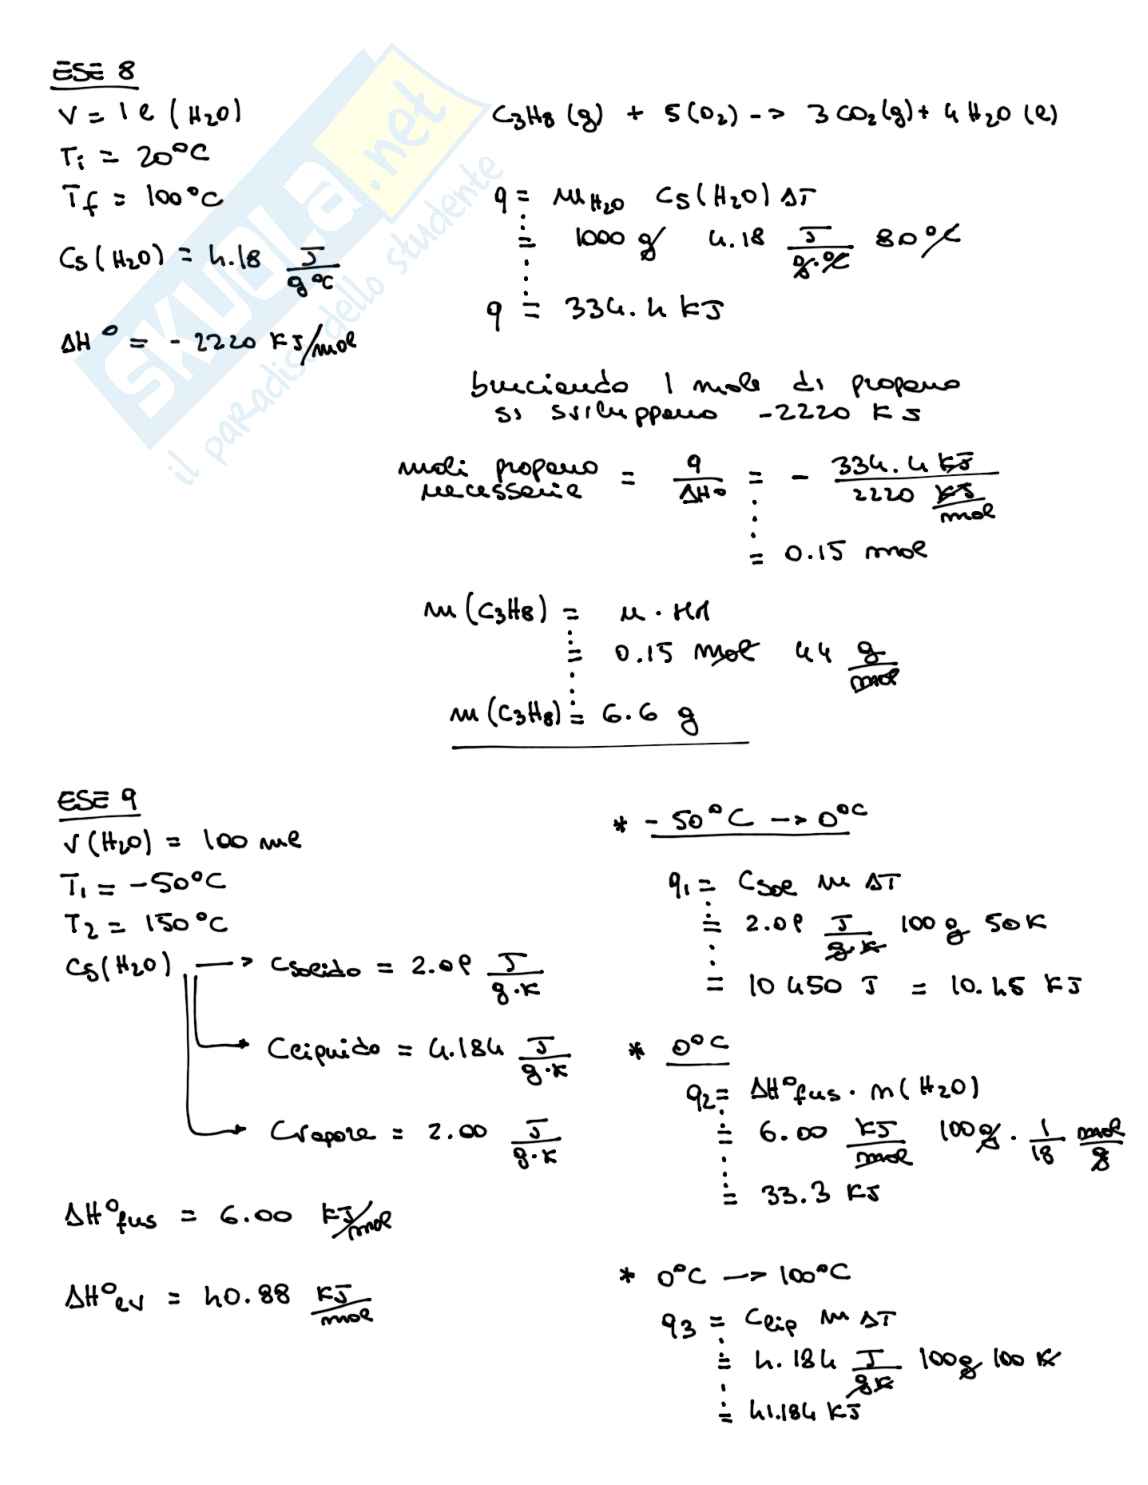 ESE 8
V = 1 l (H₂O)
Ti = 20°C
Tf = 100°C
Cs(H₂O) = 4.18 J/g°C
ΔH° = - 2220 KJ/mol
C₃H₈ (g) + 5(O₂) -> 3CO₂(g) + 4H₂O (l)
q = m H₂O Cs(H₂O) ΔT
= 1000 g 4.18 J/g·°C 80°C
q = 334.4 KJ
bruciando 1 mole di propano
si sviluppano -2220 KJ
moli propano necessarie = q/ΔH° = - 334.4 KJ / 2220 KJ/mol
= 0.15 mol
m(C₃H₈) = n · MM
= 0.15 mol 44 g/mol
m(C₃H₈) = 6.6 g
ESE 9
V(H₂O) = 100 ml
T₁ = -50°C
T₂ = 150°C
Cs(H₂O) -> Csolido = 2.09 J/g·K
Cliquido = 4.184 J/g·K
Cvapore = 2.00 J/g·K
ΔH°fus = 6.00 KJ/mol
ΔH°ev = 40.88 KJ/mol
* - 50°C -> 0°C
q₁ = Csol m ΔT
= 2.09 J/g·K 100 g 50 K
= 10450 J = 10.45 KJ
* 0°C
q₂ = ΔH°fus · n(H₂O)
= 6.00 KJ/mol 100g · 1/18 mol/g
= 33.3 KJ
* 0°C -> 100°C
q₃ = Cliq m ΔT
= 4.184 J/g K 100g 100 K
= 41.184 KJ
SKUOLA.net
il paradiso dello studente